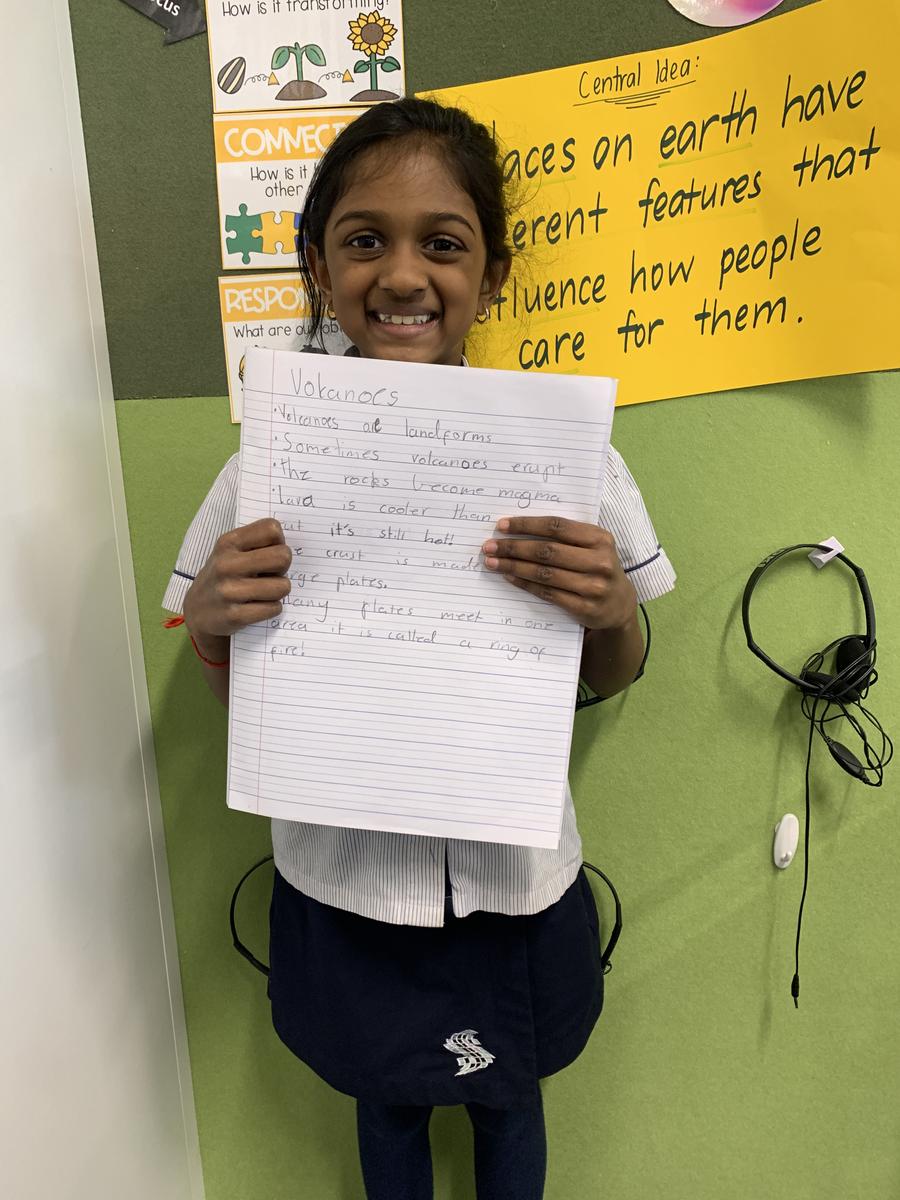 ocus
How is it transforming?
CONNEC
How is it
other
RESPO
What are ou
Central Idea:
aces on earth have
erent features that
fluence how people
care for them.
Volcanoes
• Volcanoes are landforms
• Sometimes volcanoes erupt
• The rocks become magma
• Lava is cooler than
but it's still hot!
e crust is made
arge plates.
Many plates meet in one
area it is called a ring of
fire!
S